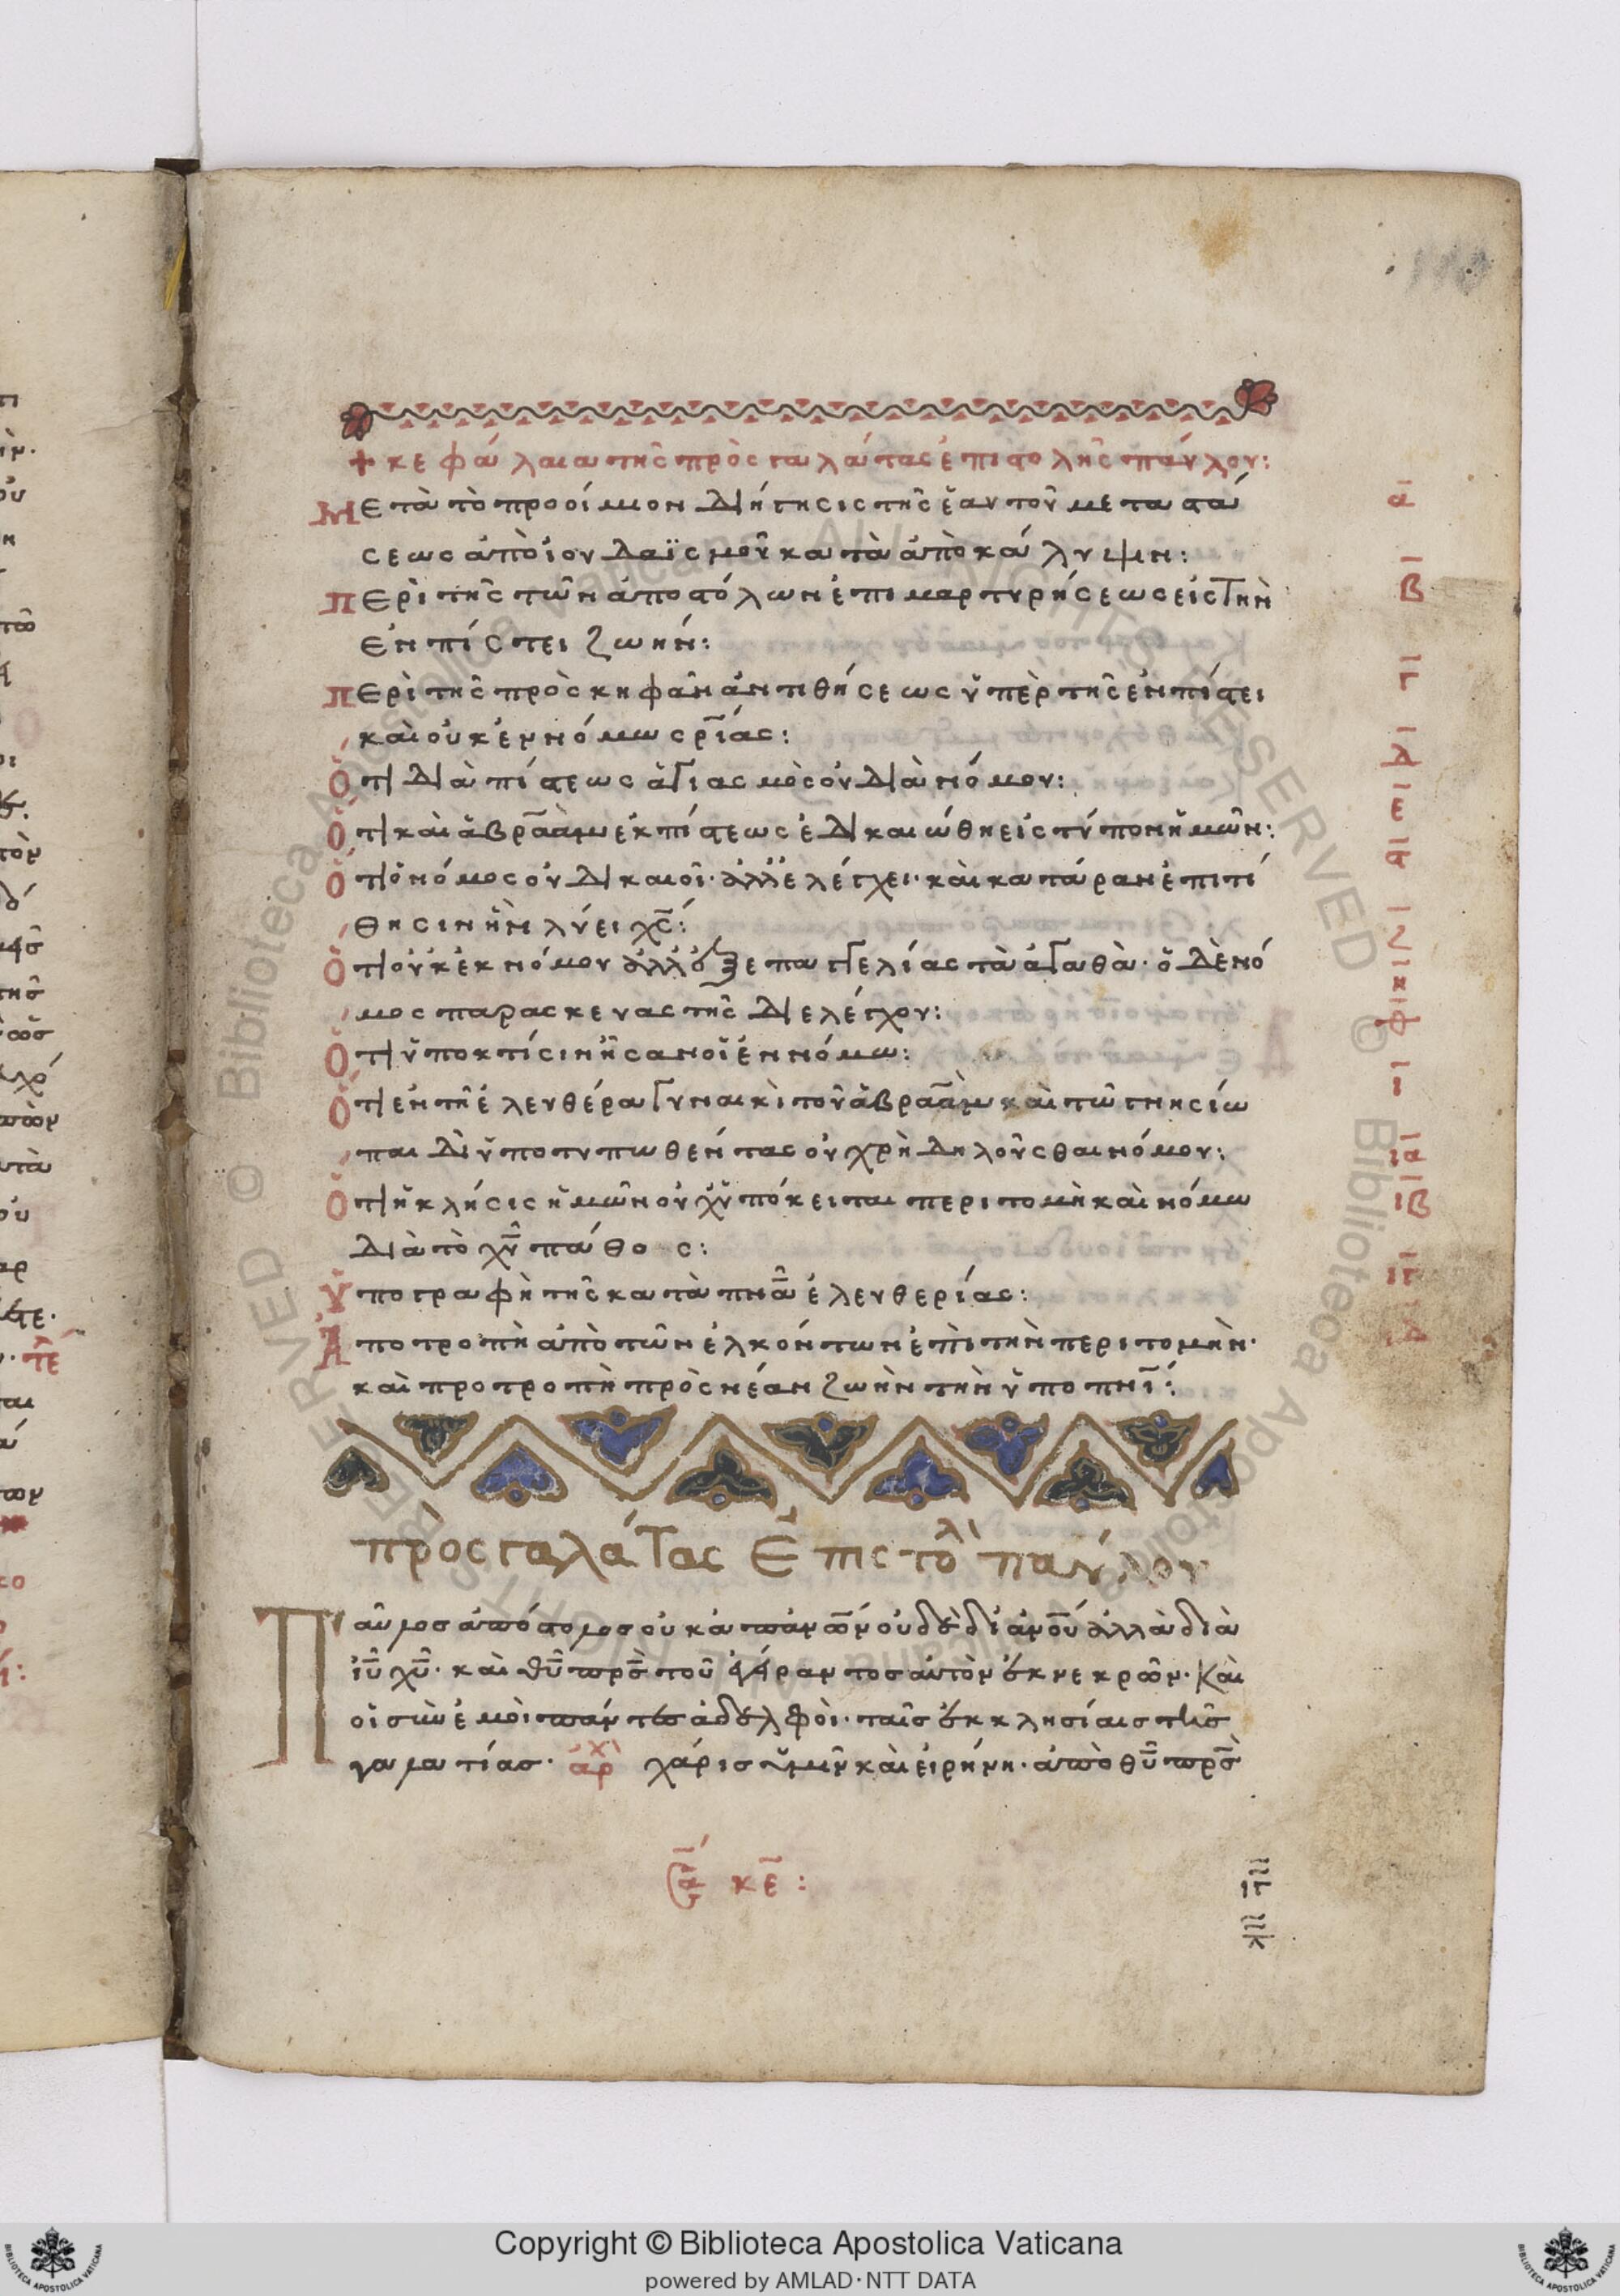 + κεφάλαια τῆς πρὸς γαλάτας ἐπιστολῆς παύλου:
Μετὰ τὸ προοίμιον διήγησις τῆς ἑαυτοῦ μεταστά
σεως ἀπὸ ἰουδαϊσμοῦ κατὰ ἀπὸκάλυψιν:
Περὶ τῆς τῶν ἀποστόλων ἐπιμαρτυρήσεως εἰς τὴν
ἐν πίστει ζωήν:
Περὶ τῆς πρὸς κηφᾶν ἀντιθήσεως ὑπὲρ τῆς ἐν πίστει
καὶ οὐκ ἐν νόμω σρίας:
Ὅτι διὰ πίστεως ἁγιασμὸς οὐ διὰ νόμου:
Ὅτι καὶ ἀβραὰμ ἐκ πίστεως ἐδικαιώθη εἰς τύπον ἡμῶν:
Ὅτι ὁ νόμος οὐ δικαιοῖ· ἀλλ' ἐλέγχει· καὶ κατάραν ἐπιτί
θησιν ἣν λύει χς:
Ὅτι οὐκ ἐκ νόμου ἀλλ' ἐξ ἐπαγγελίας τὰ ἀγαθὰ· ὁ δὲ νό
μος παρασκευαστὴς δι' ἐλέγχου:
Ὅτι ὑπο κτίσιν ἦσαν οἱ ἐν νόμω:
Ὅτι ἐν τῆ ἐλευθέρα γυναικὶ τοῦ ἀβραὰμ καὶ τῶ γνησίω
παιδὶ ὑποτυπωθέντας οὐ χρὴ δηλοῦσθαι νόμου:
Ὅτι ἡ κλήσις ἡμῶν οὐχ ὑπόκειται περιτομὴ καὶ νόμω
διὰ τὸ χυ πάθος:
Ὑπογραφὴ τῆς κατὰ πνα ἐλευθερίας:
Ἀποτροπὴ ἀπὸ τῶν ἑλκόντων ἐπὶ τὴν περιτομὴν·
καὶ προτροπὴ πρὸς νέαν ζωὴν τὴν ὑπο πνι:
πρὸς γαλάτας ἐπιστολὴ παύλου
Παῦλος ἀπόστολος οὐκ ἀπ' ἀνων οὐδὲ δι' ἀνου ἀλλὰ διὰ
ιυ χυ· καὶ θυ πρς τοῦ ἐγείραντος αὐτὸν ἐκ νεκρῶν· Καὶ
οἱ σὺν ἐμοὶ πάντες ἀδελφοὶ· ταῖς ἐκκλησίαις τῆς
γαλατίας· ἀρχ χάρις ὑμῖν καὶ εἰρήνη· ἀπὸ θυ πρς
κε:
Copyright © Biblioteca Apostolica Vaticana
powered by AMLAD·NTT DATA